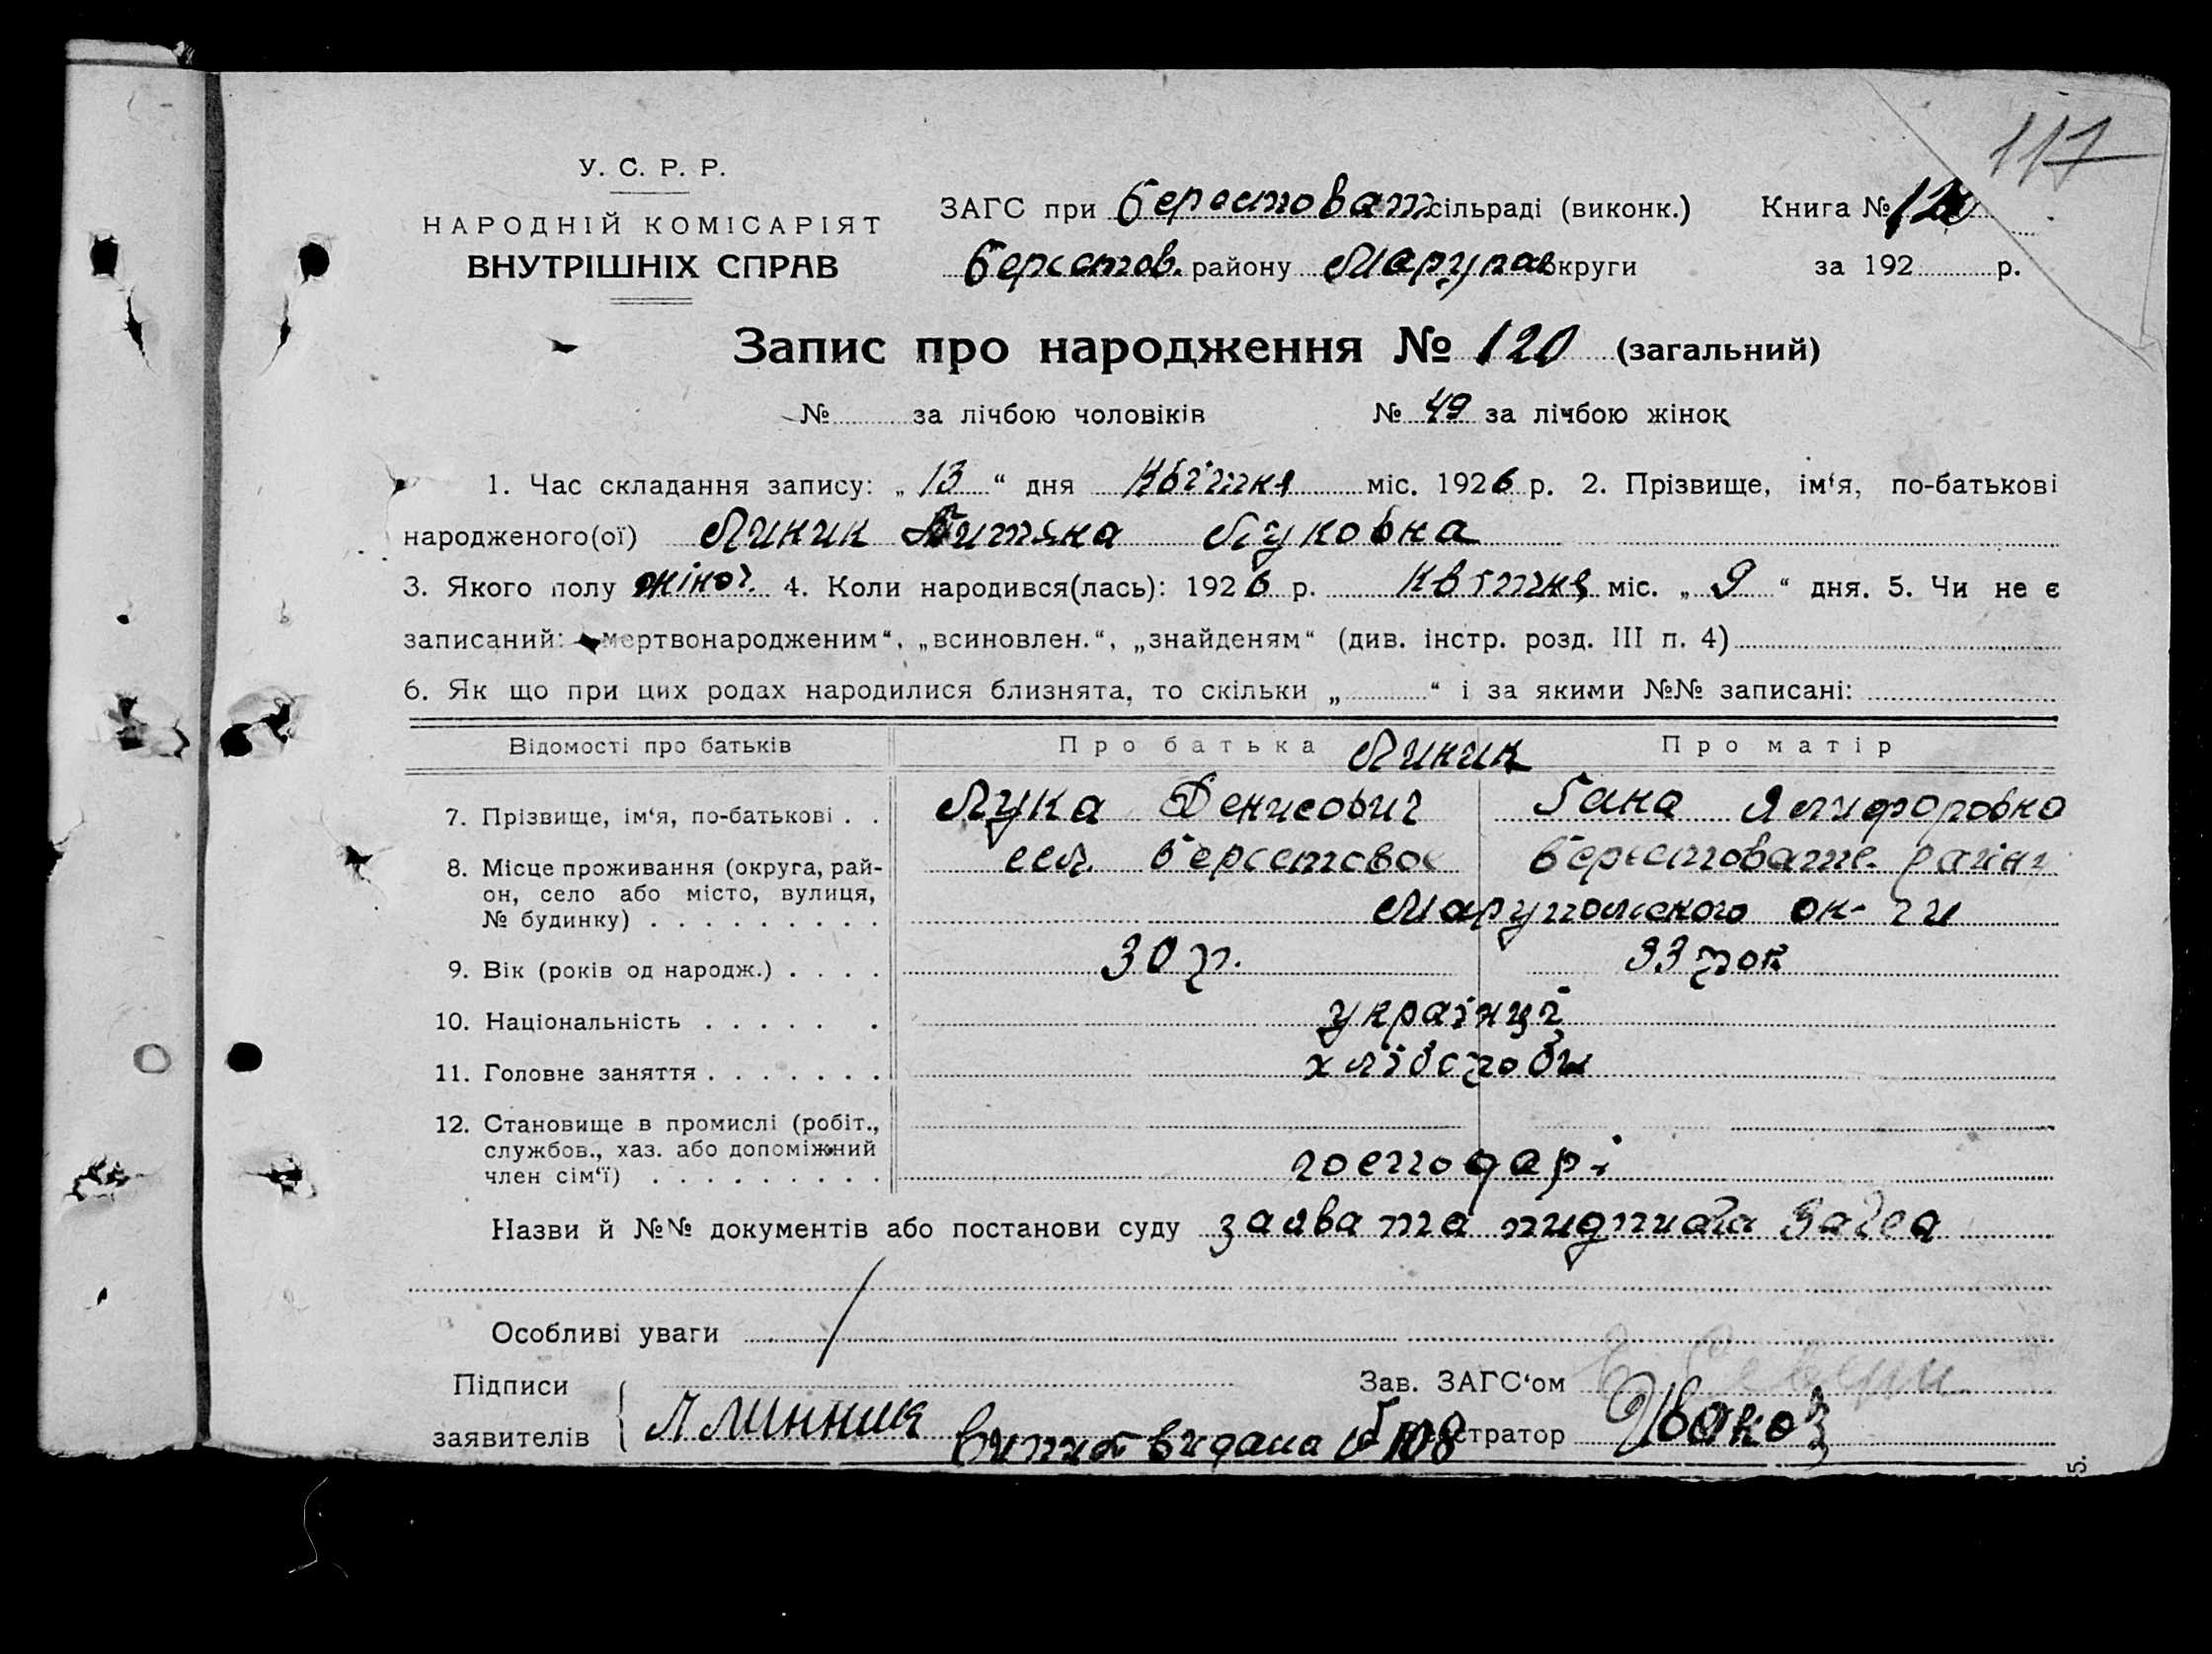 117
У. С. Р. Р.
НАРОДНІЙ КОМІСАРІЯТ
ВНУТРІШНІХ СПРАВ
ЗАГС при Берестоват сільраді (виконк.) Книга № 120
Берестов. району Маріупол округи за 192 р.
Запис про народження № 120 (загальний)
№ за лічбою чоловіків № 49 за лічбою жінок
1. Час складання запису: „ 13 “ дня Квітня міс. 1926 р. 2. Прізвище, ім‘я, по-батькові
народженого(ої) Линик Луковна
3. Якого полу жіноч. 4. Коли народився(лась): 1926 р. Квітня міс. „ 9 “ дня. 5. Чи не є
записаний: „мертвонародженим“, „всиновлен.“, „знайденям“ (див. інстр. розд. III п. 4)
6. Як що при цих родах народилися близнята, то скільки „ “ і за якими №№ записані:
Відомості про батьків Про батька Про матір
Линик
7. Прізвище, ім‘я, по-батькові . . Лука Денисович Гана
8. Місце проживання (округа, рай- сел. Берестовое
он, село або місто, вулиця,
№ будинку) . . . . . . . . . ок-ги
9. Вік (років од народж.) . . . . 30 р. 33 рок
10. Національність . . . . . . українці
11. Головне заняття . . . . . . . хліборобы
12. Становище в промислі (робіт.,
службов., хаз. або допоміжний
член сім‘ї) . . . . . . . . . господарі
Назви й №№ документів або постанови суду заява та Загса
Особливі уваги
Підписи Зав. ЗАГС‘ом
заявителів Л Линник видана № 108 Реєстратор
5.